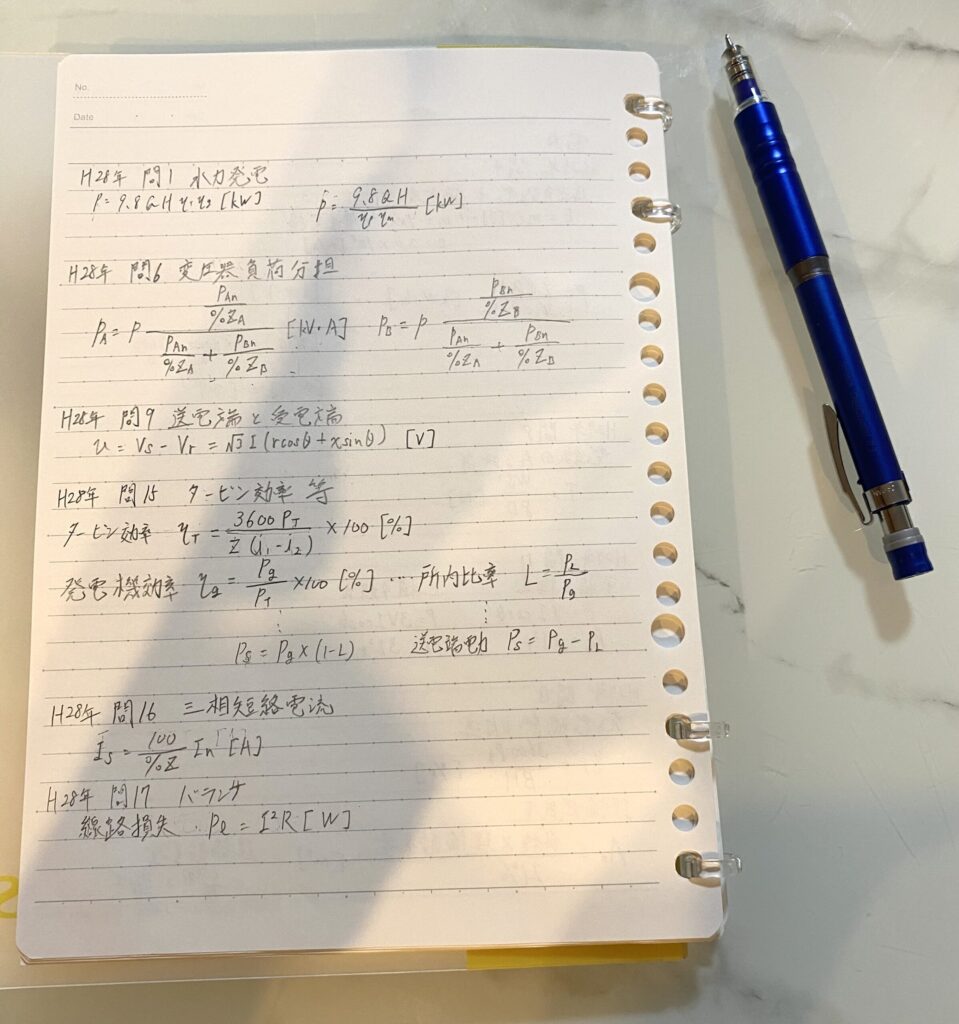 No.
Date
H28年 問1 水力発電
P=9.8QHηtηg [kW]　P=9.8QH/ηpηm [kW]
H28年 問6 変圧器負荷分担
PA=P (PAn/%ZA)/(PAn/%ZA + PBn/%ZB) [kV・A]　PB=P (PBn/%ZB)/(PAn/%ZA + PBn/%ZB)
H28年 問9 送電端と受電端
u = Vs - Vr = √3 I (rcosθ + xsinθ) [V]
H28年 問15 タービン効率 等
タービン効率 ηT = 3600PT/Z(i1-i2) ×100 [%]
発電機効率 ηg = Pg/PT ×100 [%] … 所内比率 L = PL/Pg
Ps = Pg×(1-L)　送電端電力 Ps = Pg - PL
H28年 問16 三相短絡電流
Is = 100/%Z In [A]
H28年 問17 バランサ
線路損失 Pl = I²R [W]